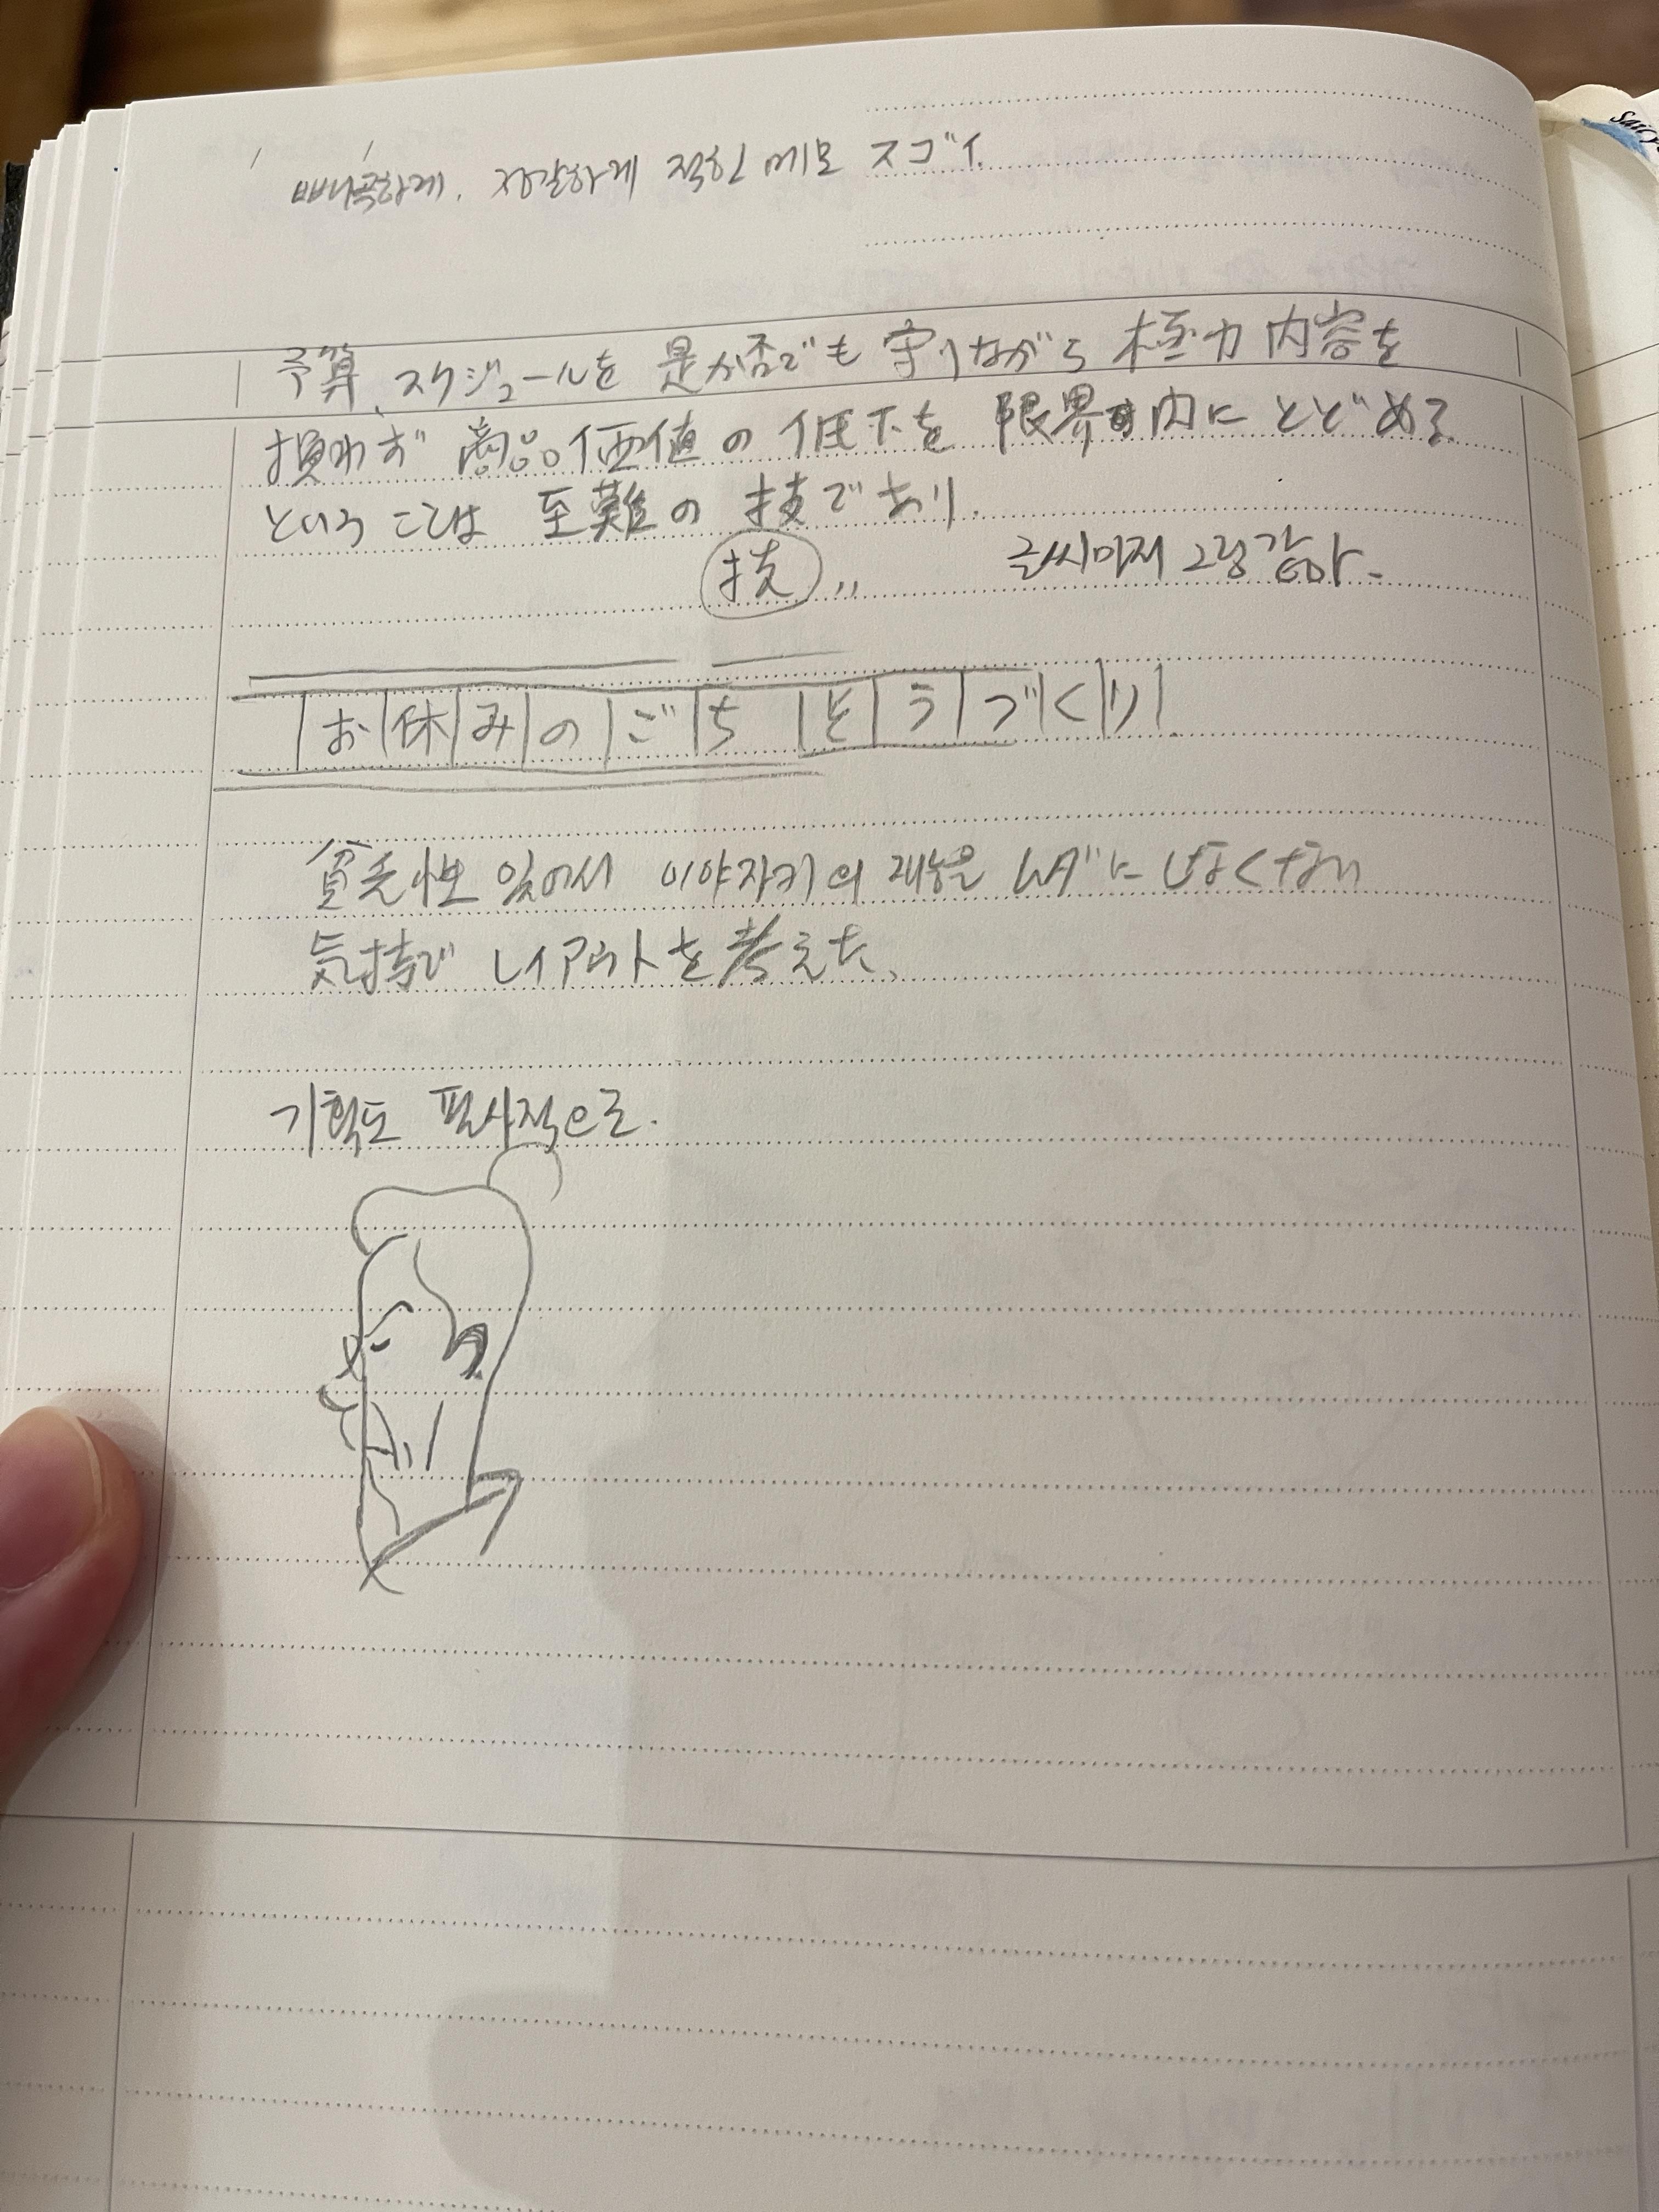 빼곡하게. 자잘하게 적힌 메모 スゴイ.
予算、スケジュールを 是が否でも 守りながら 極力 内容を
損わず 商品価値の 低下を 限界内に とどめる
ということは 至難の 技であり.
技
글씨마저 그림 같아.
お休みのごちそうづくり
貧乏性 있어서 미야자키의 재능을 ムダに しなくない
気持で レイアウトを考えた、
기획도 필사적으로.